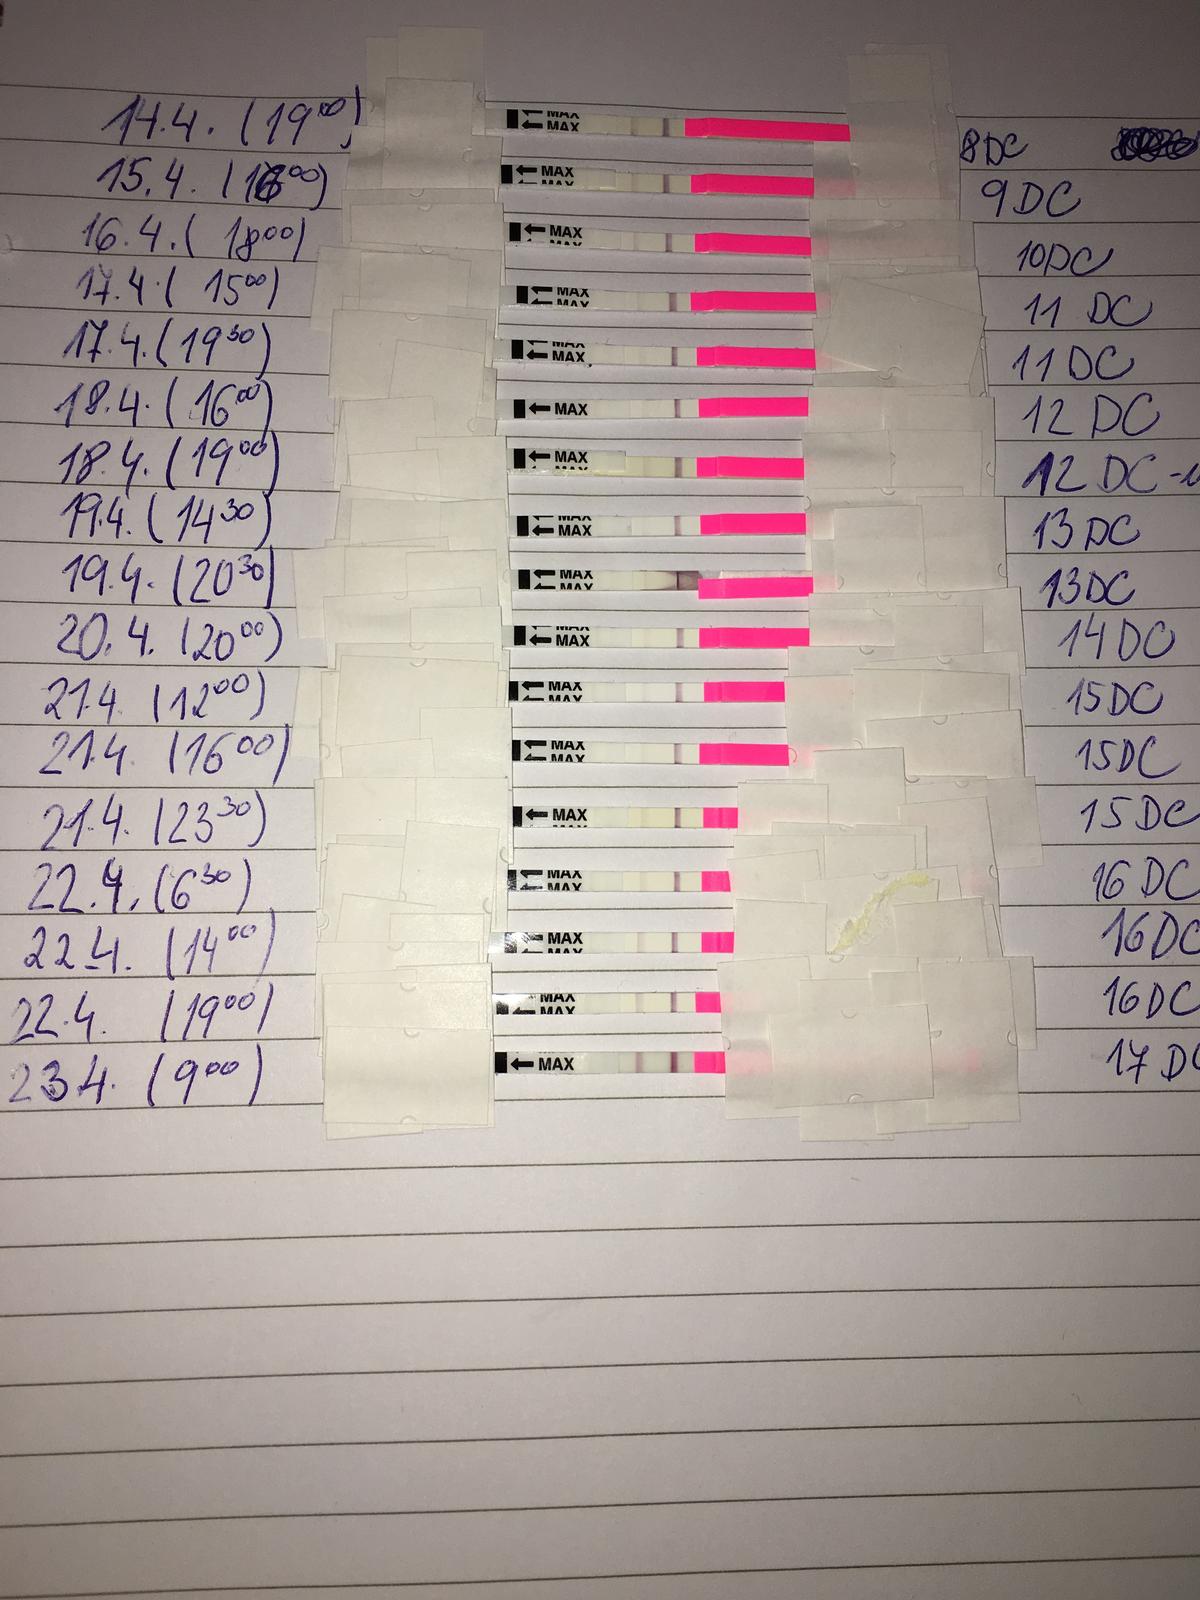 14.4. (19⁰⁰) MAX MAX 8DC
15.4. (16⁰⁰) MAX MAX 9DC
16.4. (18⁰⁰) MAX MAX 10DC
17.4. (15⁰⁰) MAX MAX 11 DC
17.4. (19³⁰) MAX MAX 11 DC
18.4. (16⁰⁰) MAX 12 DC
18.4. (19⁰⁰) MAX MAX 12 DC
19.4. (14³⁰) MAX MAX 13DC
19.4. (20³⁰) MAX MAX 13DC
20.4. (20⁰⁰) MAX MAX 14DC
21.4. (12⁰⁰) MAX MAX 15DC
21.4. (16⁰⁰) MAX MAX 15DC
21.4. (23³⁰) MAX MAX 15DC
22.4. (6³⁰) MAX MAX 16 DC
22.4. (14⁰⁰) MAX MAX 16DC
22.4. (19⁰⁰) MAX MAX 16DC
23.4. (9⁰⁰) MAX 17 DC